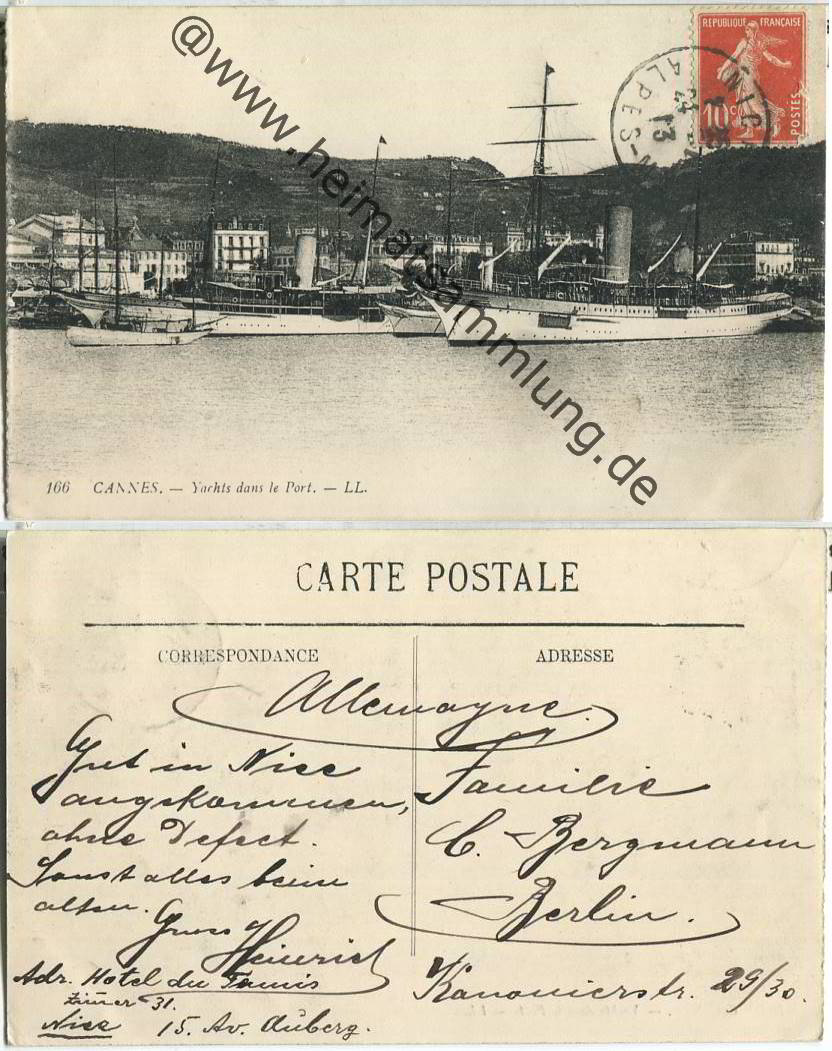 @www.heimatsammlung.de
REPUBLIQUE FRANÇAISE
10c
POSTES
ALPES-M
24
13
166 CANNES. — Yachts dans le Port. — LL.
CARTE POSTALE
CORRESPONDANCE
ADRESSE
Allemagne.
Gut in Nice
angekommen,
ohne Defect.
Sonst alles beim
alten.
Gruss Heinrich
Adr. Hotel du
Zimer 31.
Nice 15. Av. Auberg.
Familie
C. Bergmann
Berlin.
Kanonierstr. 29/30.